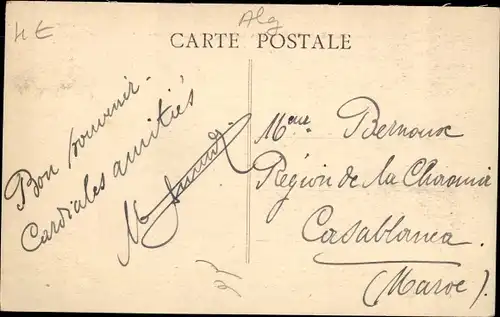 4€
Alg
CARTE POSTALE
Bon souvenir.
Cordiales amitiés
Meur Bernoux
Région de la Chaouia
Casablanca.
(Maroc).